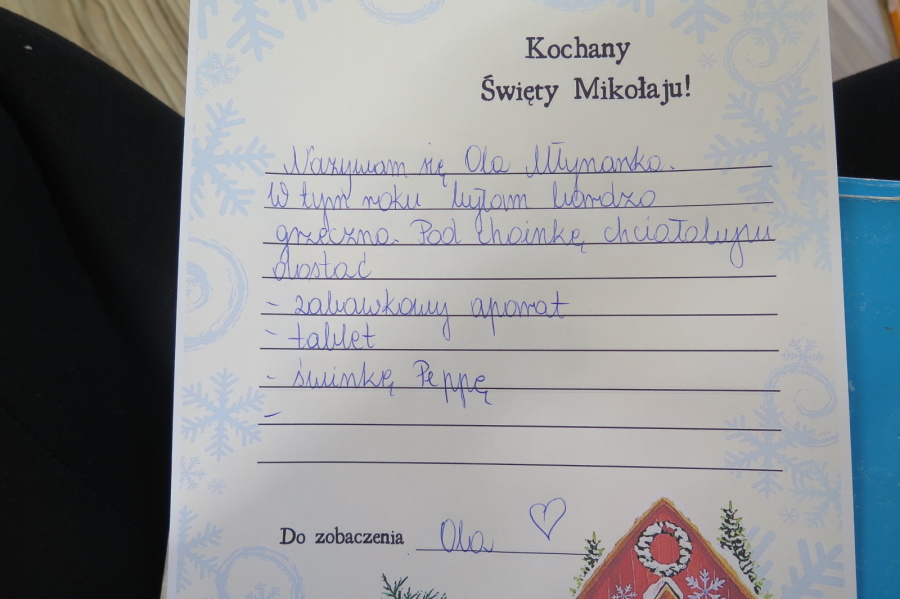 Kochany
Święty Mikołaju!
Nazywam się Ola Młynarska.
W tym roku byłam bardzo
grzeczna. Pod choinkę chciałabym
dostać
- zabawkowy aparat
- tablet
- świnkę Peppę
-
Do zobaczenia Ola